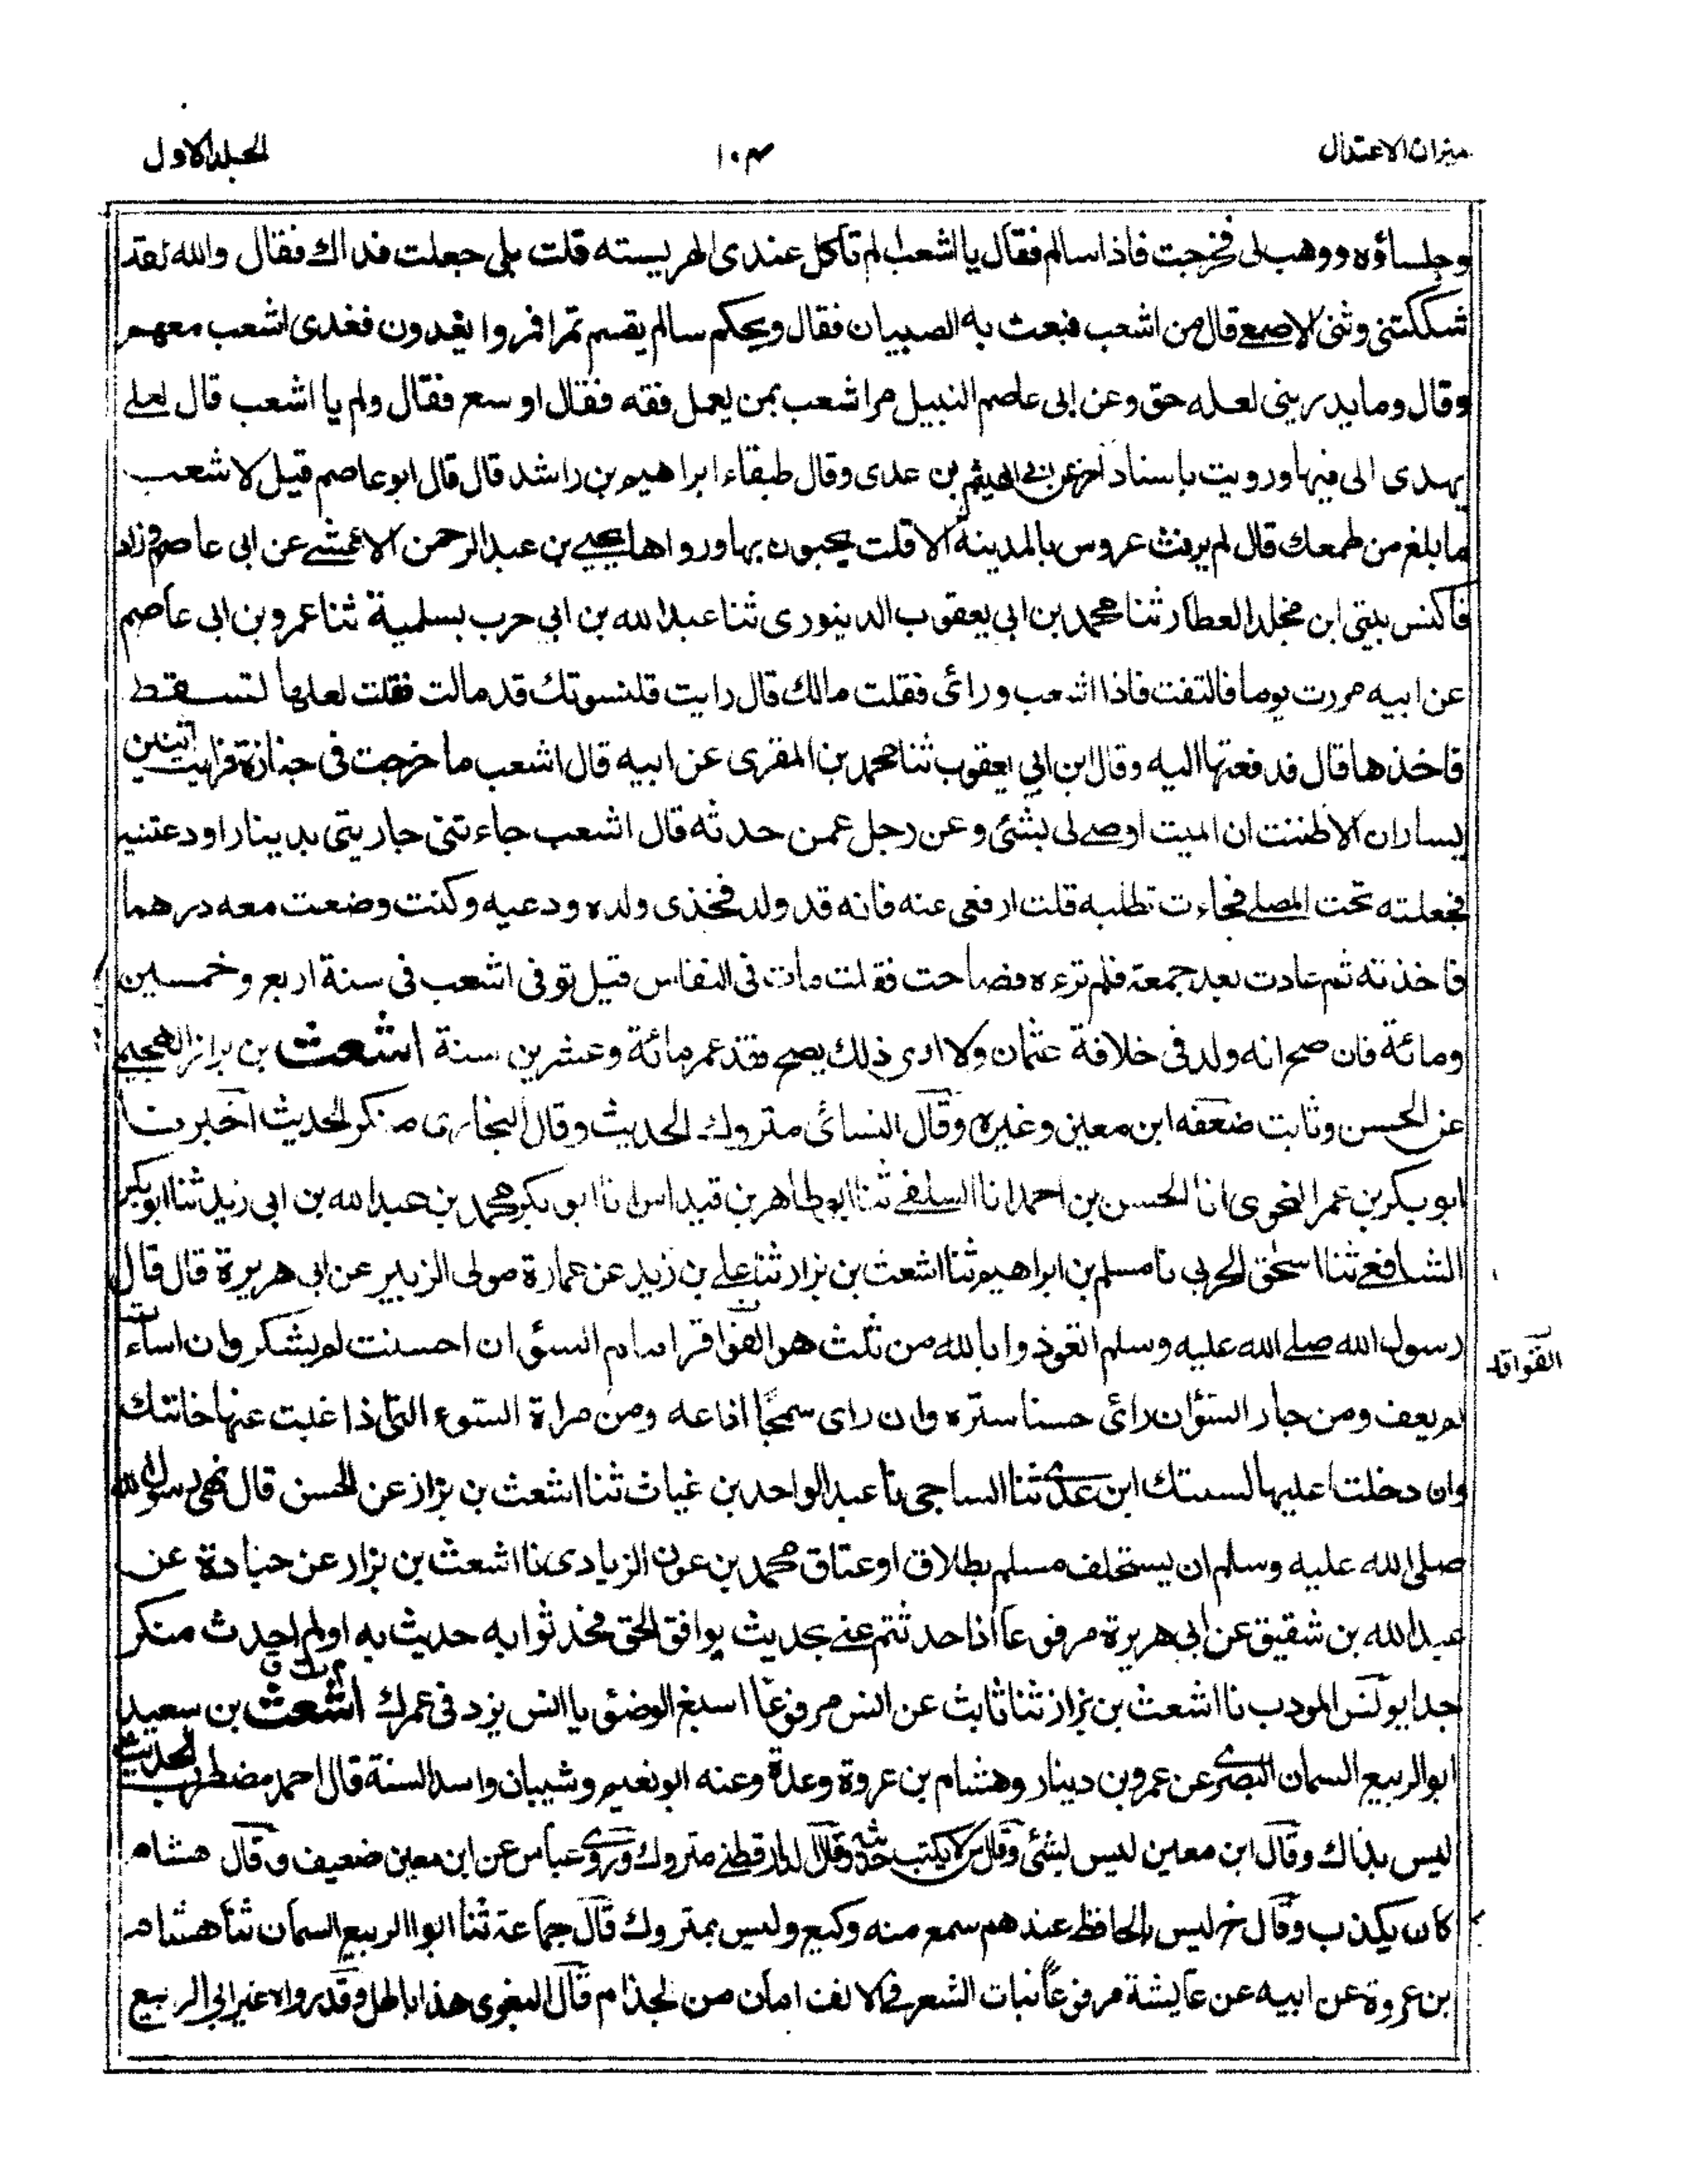 ميزان الاعتدال
١٠٣
الجلد الاول
وجلساؤه ووهب لى فخرجت فاذا سالم فقال يا اشعب لم تاكل عندى الهريسته قلت بلى جعلت فداك فقال والله لقد
شككتنى وثنى الاصمع قال من اشعب فبعث به الصبيان فقال ويحكم سالم يقسم تمرا فمروا يغدون فغدى اشعب معهم
وقال وما يدرينى لعله حق وعن ابى عاصم النبيل مر اشعب بمن يعمل فقه فقال اوسع فقال ولم يا اشعب قال لعلى
يهدى الى فيها ورويت باسناد اخر عن الهيثم بن عدى وقال طبقاء ابراهيم بن راشد قال قال ابو عاصم قيل لاشعب
ما بلغ من طمعك قال لم يرفث عروس بالمدينة الا قلت يحبون بها ورواها يحيى بن عبد الرحمن الاعمشى عن ابى عاصم وزاد
فاكنس بيتى ابن مخلد العطار ثنا محمد بن ابى يعقوب الدينورى ثنا عبد الله بن ابى حرب بسلمية ثنا عمرو بن ابى عاصم
عن ابيه مررت يوما فالتفت فاذا اشعب ورائى فقلت مالك قال رايت قلنسوتك قد مالت فقلت لعلها لتسقط
فاخذها قال فدفعتها اليه وقال ابن ابى يعقوب ثنا محمد بن المقرى عن ابيه قال اشعب ما خرجت فى جنازة فرايت اثنين
يساران الا ظننت ان الميت اوصى لى بشئ وعن رجل عمن حدثه قال اشعب جاءتنى جاريتى بدينار اودعتنيه
فجعلته تحت المصلى فجاءت تطلبه قلت ارفعى عنه فانه قد ولد فخذى ولده ودعيه وكنت وضعت معه درهما
فاخذته ثم عادت بعد جمعة فلم تره فصاحت فقلت مات فى النفاس قيل توفى اشعب فى سنة اربع وخمسين
ومائة فان صح انه ولد فى خلافة عثمان ولا ارى ذلك يصح فقد عمر مائة وعشرين سنة اشعث بن براز الهجيمى
عن الحسن وثابت ضعفه ابن معين وغيره وقال النسائى متروك الحديث وقال البخارى منكر الحديث اخبرنا
ابو بكر بن عمر النحوى انا الحسن بن احمد انا السلفى ثنا ابو طاهر بن قيداس انا ابو بكر محمد بن عبد الله بن ابى زيد ثنا ابو بكر
الشافعى ثنا اسحق الحربى نا مسلم بن ابراهيم ثنا اشعث بن بزار ثنا على بن زيد عن عمارة مولى الزبير عن ابى هريرة قال قال
رسول الله صلى الله عليه وسلم اتعوذوا بالله من ثلث هن الفواقر امام السئ ان احسنت لم يشكر وان اسأت
لم يعف ومن جار السئ ان رائ حسنا ستره وان راى سمجًا اذاعه ومن مراة السوء التى اذا غبت عنها خانتك
وان دخلت عليها لسنتك ابن عدى ثنا الساجى نا عبد الواحد بن غياث ثنا اشعث بن بزاز عن الحسن قال نهى رسول الله
صلى الله عليه وسلم ان يستحلف مسلم بطلاق او عتاق محمد بن عون الزيادى نا اشعث بن بزار عن حبادة عن
عبد الله بن شقيق عن ابى هريرة مرفوعًا اذا حدثتم عنى بحديث يوافق الحق فخذوا به حديث به او لم احدث منكر
جدا يونس المودب نا اشعث بن بزاز ثنا ثابت عن انس مرفوعًا اسبغ الوضئ يا انس يزد فى عمرك اشعث بن سعيد
ابو الربيع السمان البصرى عن عمرو بن دينار وهشام بن عروة وعدة وعنه ابو نعيم وشيبان واسد السنة قال احمد مضطرب الحديث
ليس بذاك وقال ابن معين ليس بشئ وقال س لا يكتب حديثه وقال الدارقطنى متروك وروى عباس عن ابن معين ضعيف وقال هشام
كان يكذب وقال خ ليس بالحافظ عندهم سمع منه وكيع وليس بمتروك قال جماعة ثنا ابوا الربيع السمان ثنا هشام
بن عروة عن ابيه عن عايشة مرفوعًا نبات الشعر فى الانف امان من الجذام قال البغوى هذا باطل وقد رواه غير ابى الربيع
الفواقد